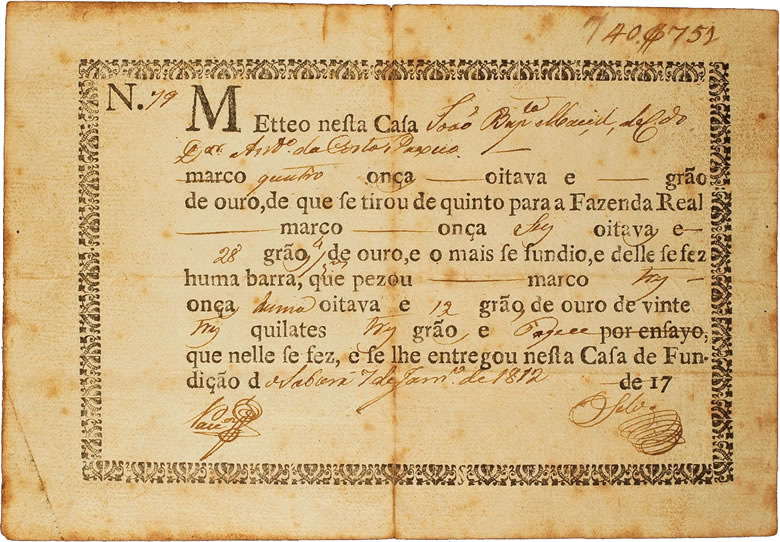 40$751
N. 79 METteo neſta Caſa João Bapta Maciel, de C do
Anto da Costa
marco quatro onça oitava e grão
de ouro, de que ſe tirou de quinto para a Fazenda Real
marco onça Seys oitava e
28 grão de ouro, e o mais ſe fundio, e delle ſe fez
huma barra, que pezou marco trez
onça huma oitava e 12 grão de ouro de vinte
trez quilates trez grão e por enſayo,
que nelle ſe fez, e ſe lhe entregou neſta Caſa de Fun-
dição do Sabará 7 de Janro de 1812 de 17